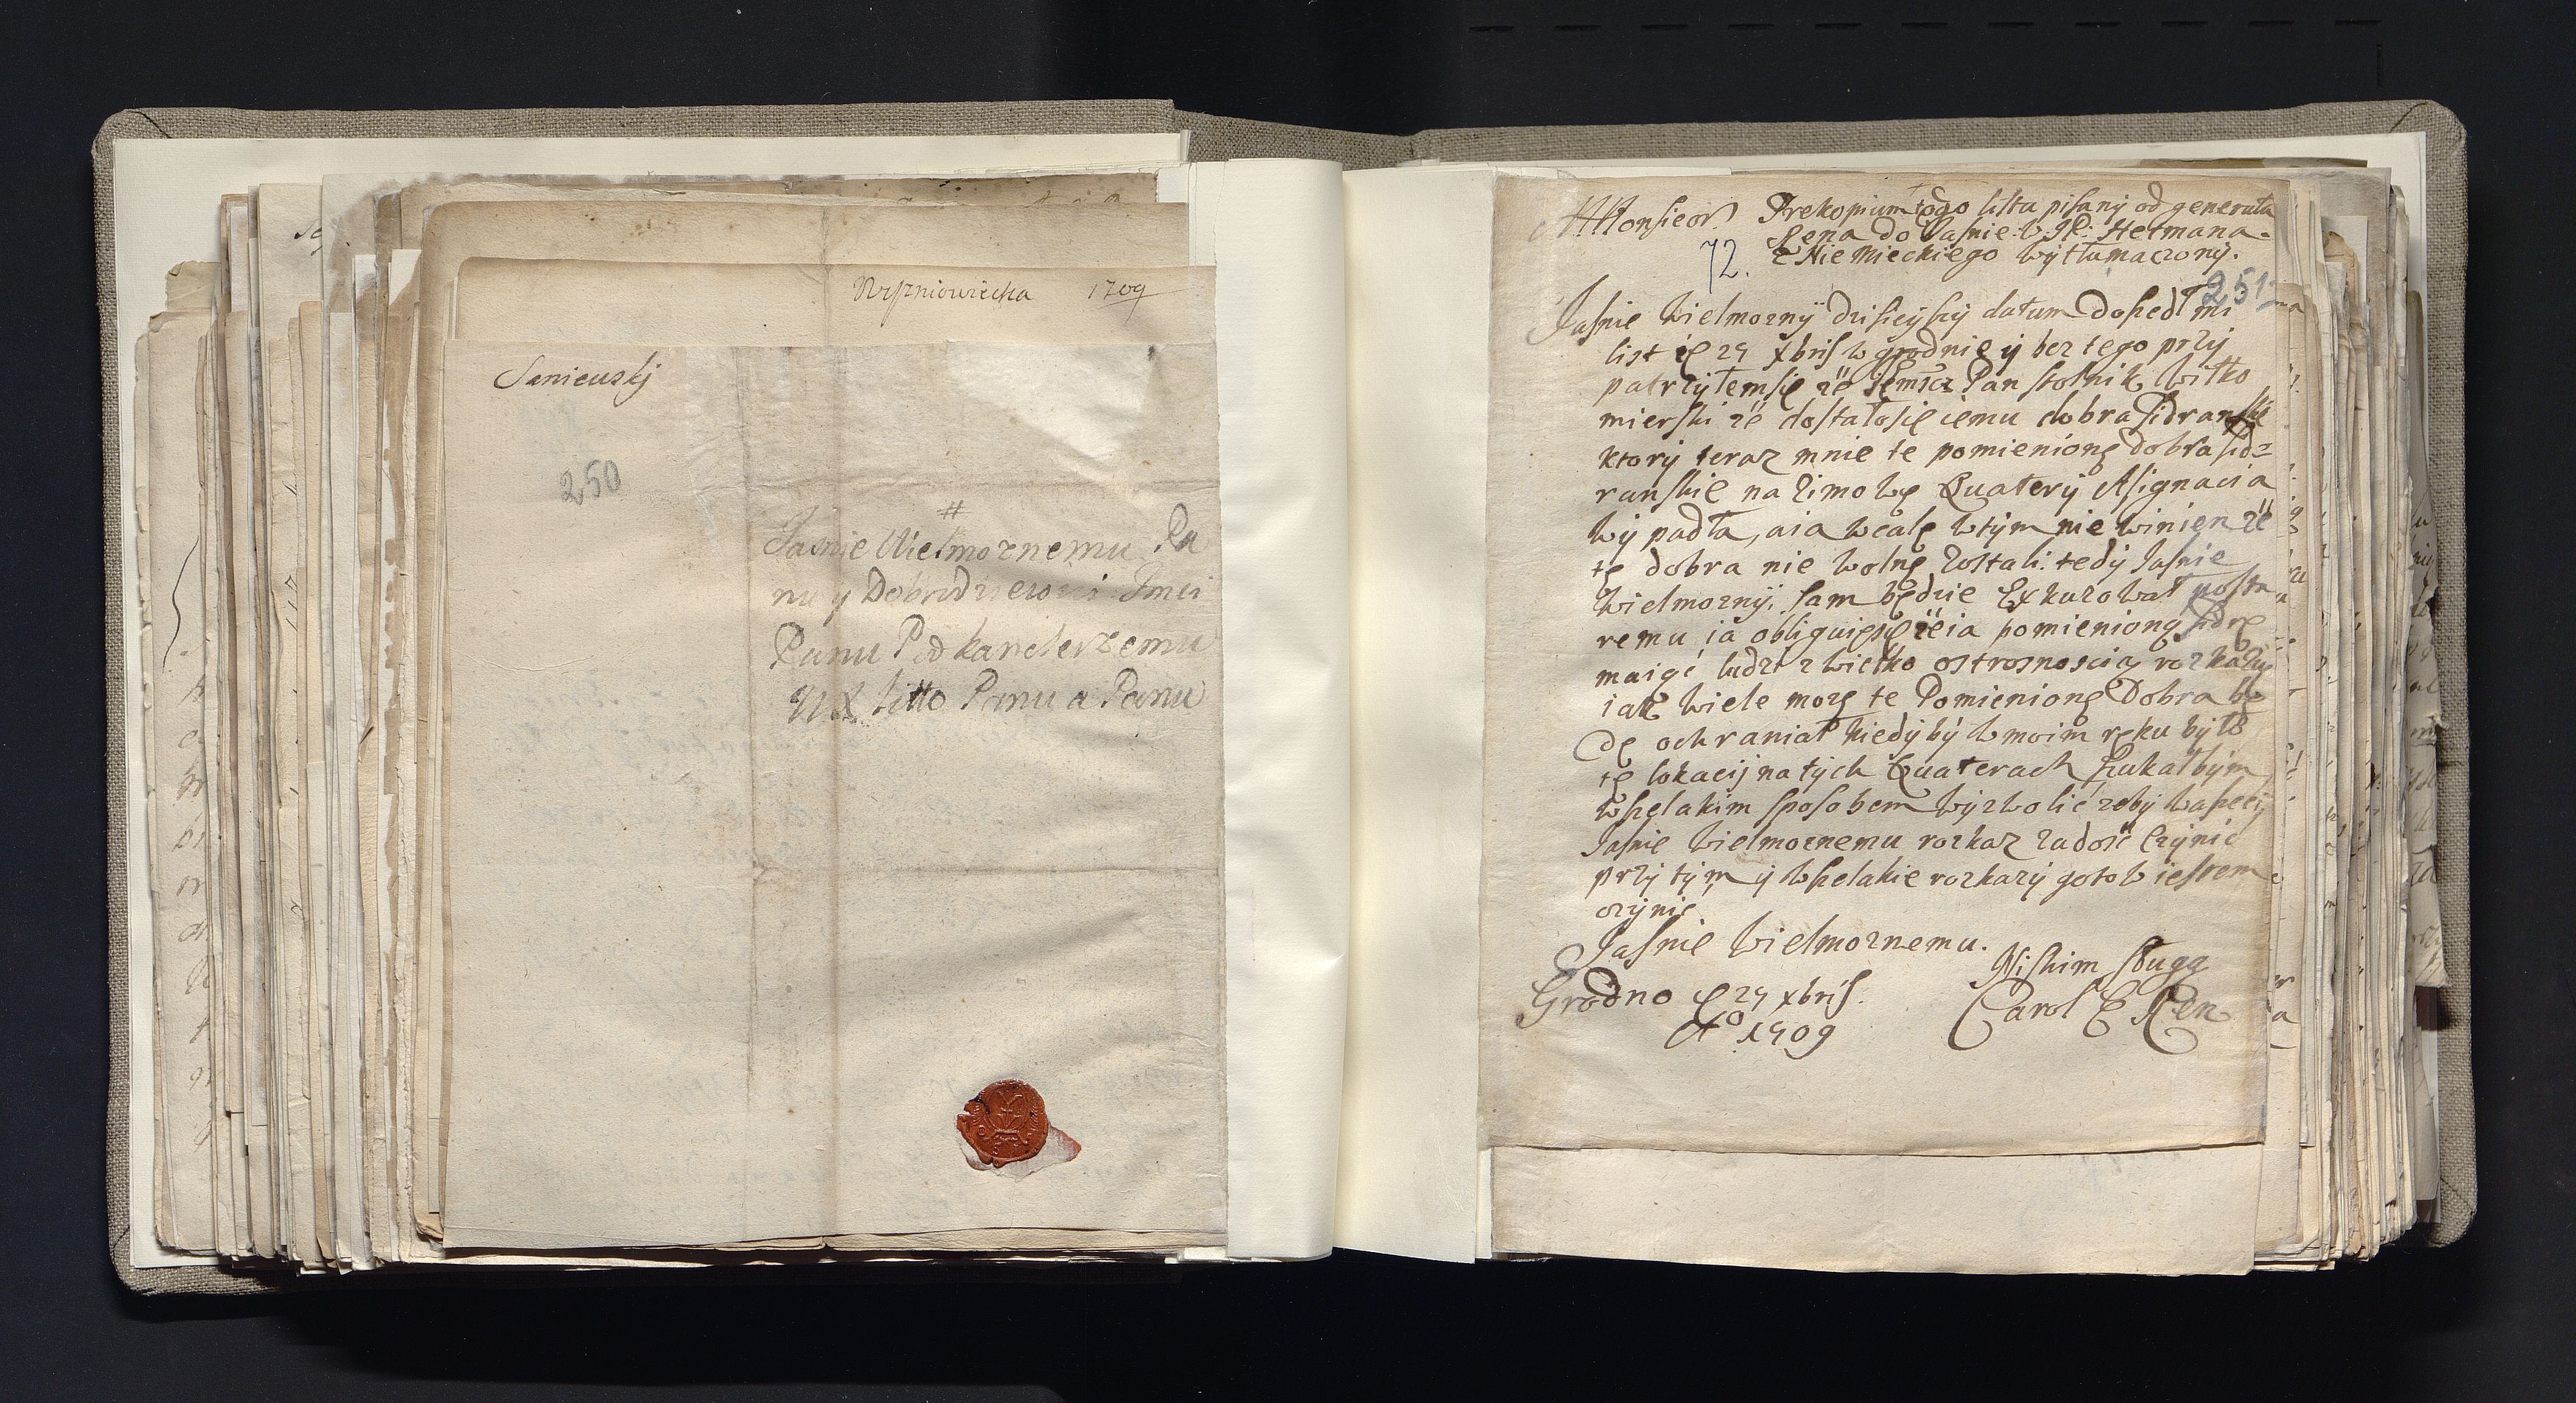 Wiszniowiecka 1709
Saniewskj
250
#
Jasnie Wielmoznemu Pa
nu y Dobrodzieiowi Jmci
Panu Pod kanclerzemu
WX Litto Panu a Panu
Monsieor Prekopium tego listu pisaný od generała
Rena do Jasnie W JP: Hetmana
z Niemieckiego wytłumaczoný.
72.
251
Jasnie Wielmozný dzisieyszý datum doszedł mi
list 29 Xbris w grodnie ý bez tego przý
patrzýłemsie ze Jemsci Pan stolnik Wiłko
mierski ze dostałosię iemu dobra Sidranskie
ktorý teraz mnie te pomienione dobra sid=
ranskie na Zimowe Quaterý Asignacia
wý padła, aia wcale wtým nie winien ze
te dobra nie wolne zostali: tedý Jasnie
wielmozný, sam będzie Exkuzowat
remu ia obliguięsie zeia pomienioną sidrę
maiąc ludzi z wielko ostroznoscią rozkazę
iak wiele mozę te Pomienione Dobra bę
dę ochraniał kiedýbý w moim ręku býło
tę lokacij na tých Quaterach szukałbým
wszelakim sposobem wýzwolic zebý waszeij
Jasnie Wielmoznemu rozkaz zadosic czýnic
przý tým ý wszelakie rozkazý gotow iestem
czýnic
Jasnie Wielmoznemu.
Niskim sługą
Grodno 29 xbris.
Carol E Ren
Ao 1709